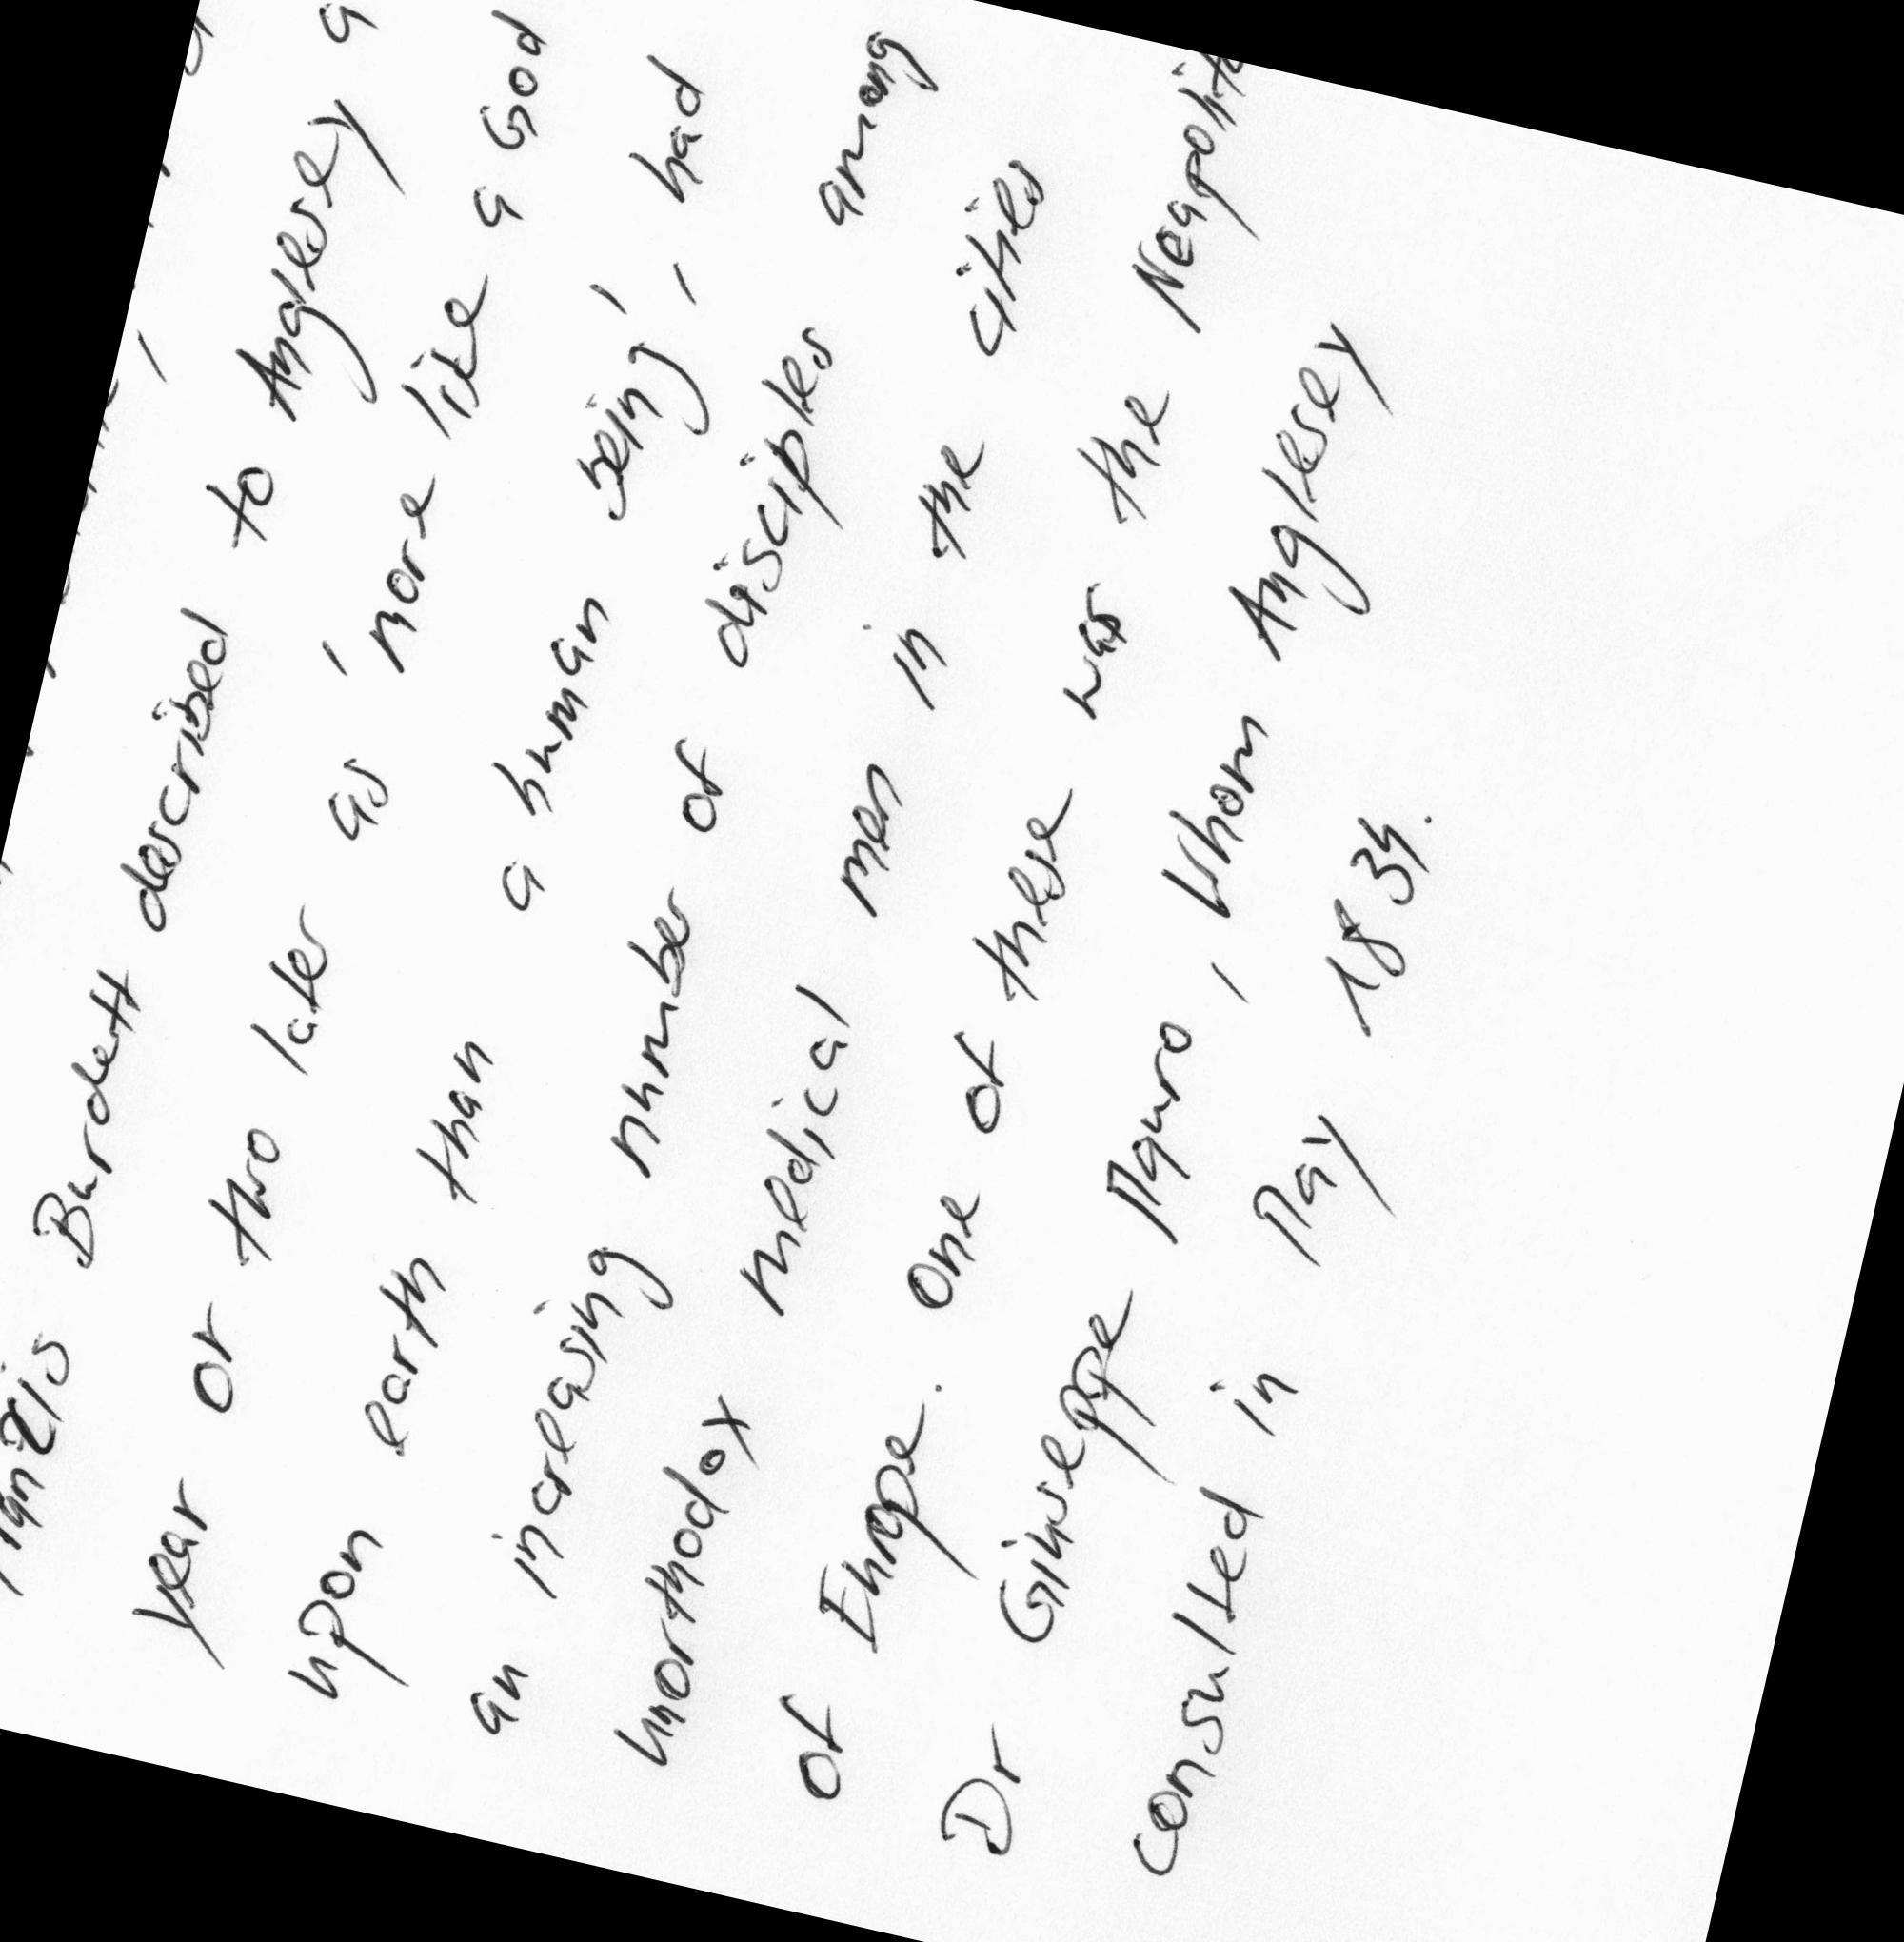 Burdett described to Anglesey a
year or two later as ' more like a God
upon earth than a human being ' , had
an increasing number of disciples among
unorthodox medical men in the cities
of Europe . One of these was the
Dr Giuseppe Mauro , whom Anglesey
consulted in May 1834 .